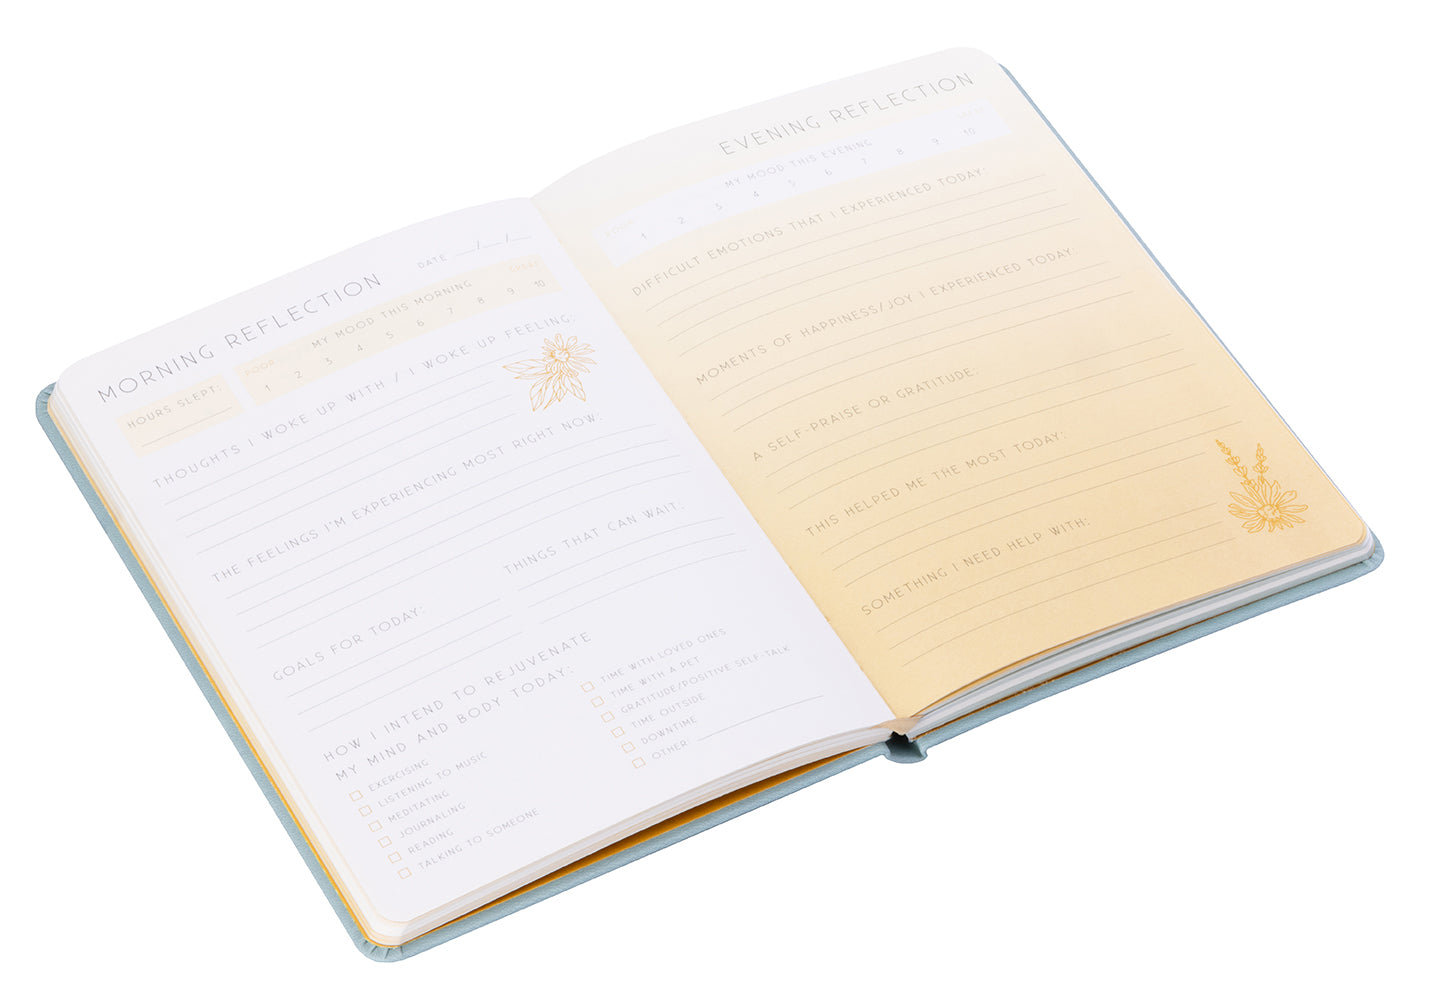 MORNING REFLECTION
DATE __/__/__
HOURS SLEPT:
MY MOOD THIS MORNING
POOR GREAT
1 2 3 4 5 6 7 8 9 10
THOUGHTS I WOKE UP WITH / I WOKE UP FEELING:
THE FEELINGS I'M EXPERIENCING MOST RIGHT NOW:
GOALS FOR TODAY:
THINGS THAT CAN WAIT:
HOW I INTEND TO REJUVENATE
MY MIND AND BODY TODAY:
EXERCISING
LISTENING TO MUSIC
MEDITATING
JOURNALING
READING
TALKING TO SOMEONE
TIME WITH LOVED ONES
TIME WITH A PET
GRATITUDE/POSITIVE SELF-TALK
TIME OUTSIDE
DOWNTIME
OTHER:
EVENING REFLECTION
MY MOOD THIS EVENING
POOR GREAT
1 2 3 4 5 6 7 8 9 10
DIFFICULT EMOTIONS THAT I EXPERIENCED TODAY:
MOMENTS OF HAPPINESS/JOY I EXPERIENCED TODAY:
A SELF-PRAISE OR GRATITUDE:
THIS HELPED ME THE MOST TODAY:
SOMETHING I NEED HELP WITH: